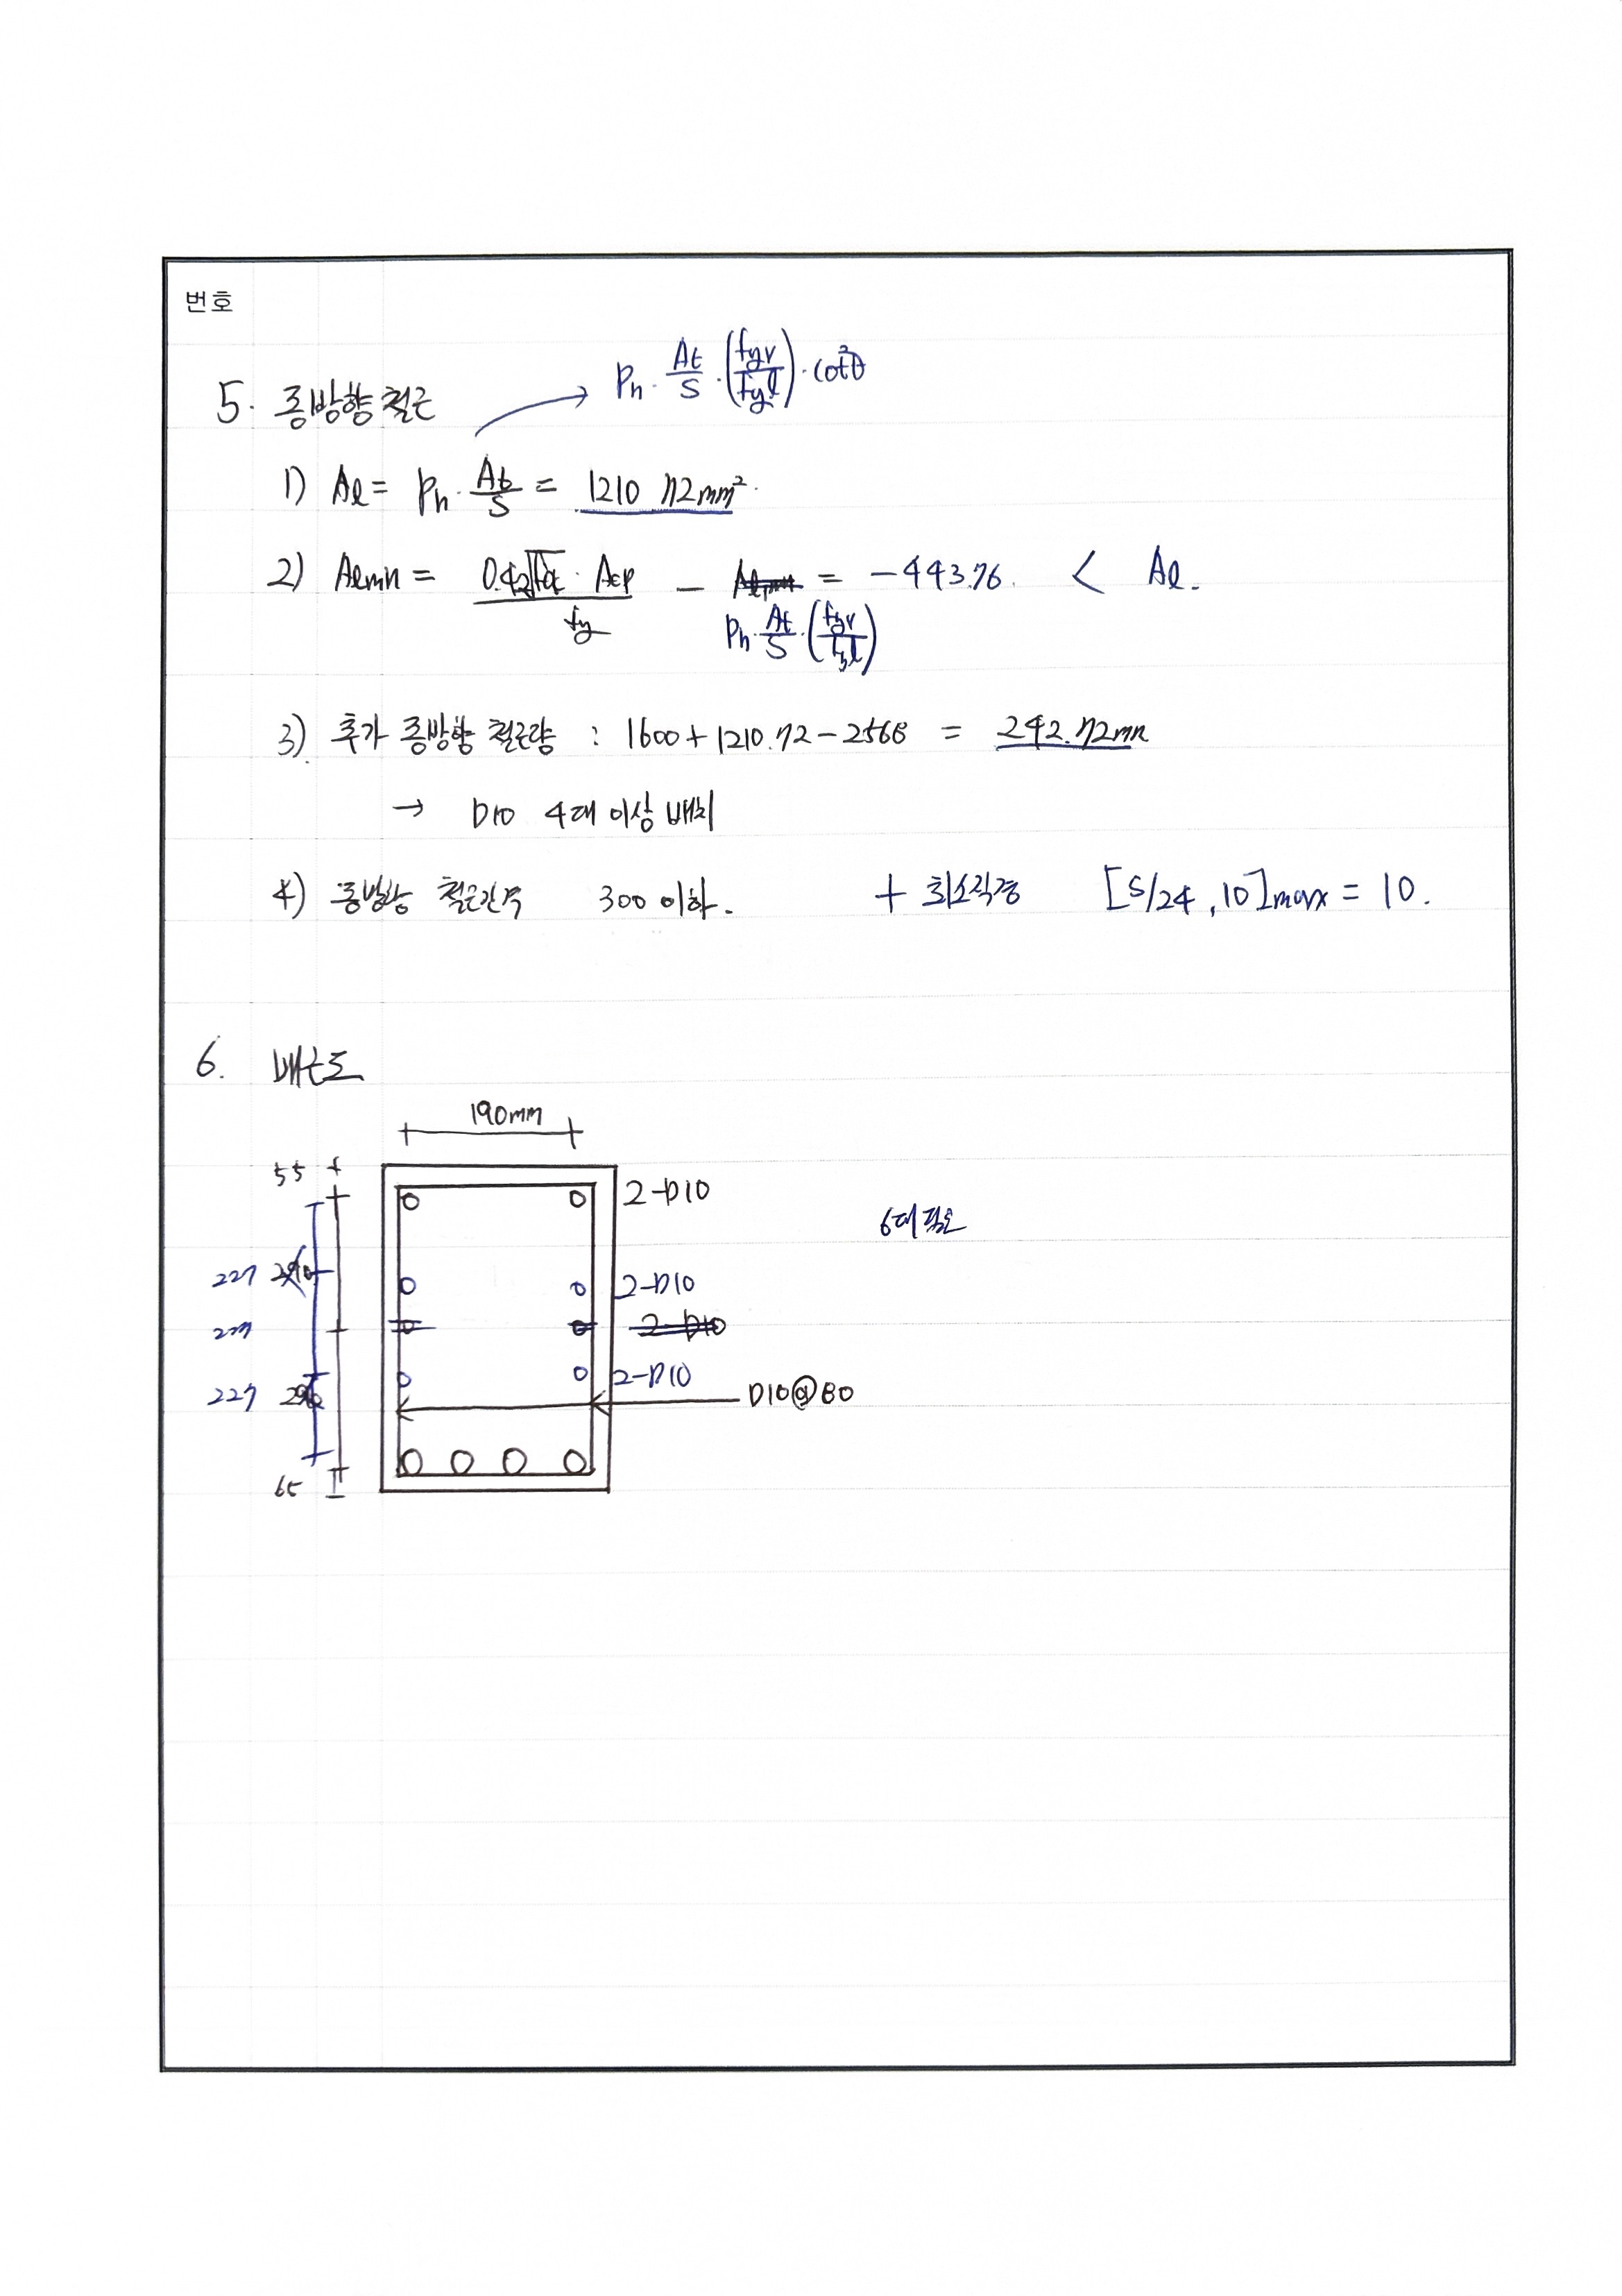 번호
Ph · At/S · (fyv/fyl) · cot²θ
5. 종방향 철근
1) Al = Ph · At/S = 1210.72mm².
2) Almin = 0.42√fck · Acp / fy - Ph · At/S · (fyv/fyl) = -443.76. < Al.
3) 추가 종방향 철근량 : 1600 + 1210.72 - 2568 = 242.72mm
→ D10 4대 이상 배치
4) 종방향 철근간격 300 이하. + 최소직경 [S/24, 10]max = 10.
6. 배근도
190mm
55
2-D10
6대 필요
227 2-D10
227
2-D10
227
D10@80
65